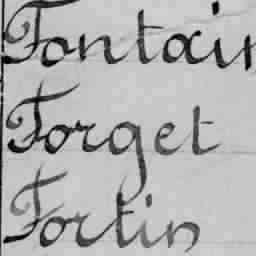 Fontain
Forget
Fortin